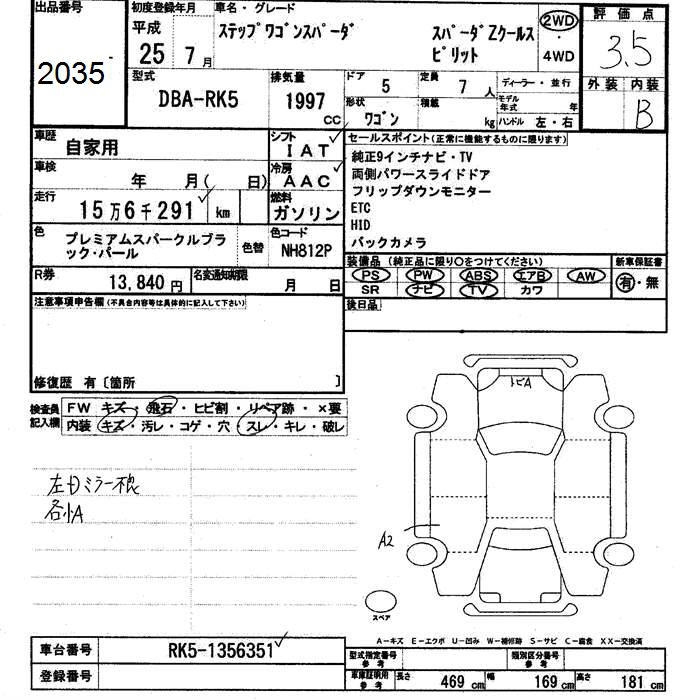 出品番号
2035
初度登録年月
平成
25 7月
車名・グレード
ステップワゴンスパーダ スパーダZクールス
ピリット
2WD
・
4WD
評価点
3.5
外装 内装
B
型式
DBA-RK5
排気量
1997
CC
ドア
5
定員
7人
形状
ワゴン
積載
kg
ディーラー・並行
モデル年式 年
ハンドル 左・右
車歴
自家用
シフト
IAT
車検
年 月( 日)
冷房
AAC
走行
15万6千291 km
燃料
ガソリン
色
プレミアムスパークルブラ
ック・パール
色替
色コード
NH812P
R券
13,840円
名変通知期限
月 日
セールスポイント(正常に機能するものに限ります)
純正9インチナビ・TV
両側パワースライドドア
フリップダウンモニター
ETC
HID
バックカメラ
装備品(純正品に限り○をつけてください)
PS PW ABS エアB AW
SR ナビ TV カワ
新車保証書
有・無
後日品
注意事項申告欄(不具合内容等は具体的に記入して下さい)
修復歴 有〔箇所 〕
検査員
記入欄
FW キズ・飛石・ヒビ割・リペア跡・×要
内装・キズ・汚レ・コゲ・穴・スレ・キレ・破レ
左Dミラー不良
各小A
トビA
A2
スペア
A-キズ E-エクボ U-凹み W-補修跡 S-サビ C-腐食 XX-交換済
車台番号
RK5-1356351
登録番号
型式指定番号
参考
類別区分番号
参考
車庫証明用
参考
長さ 469 cm
幅 169 cm
高さ 181 cm